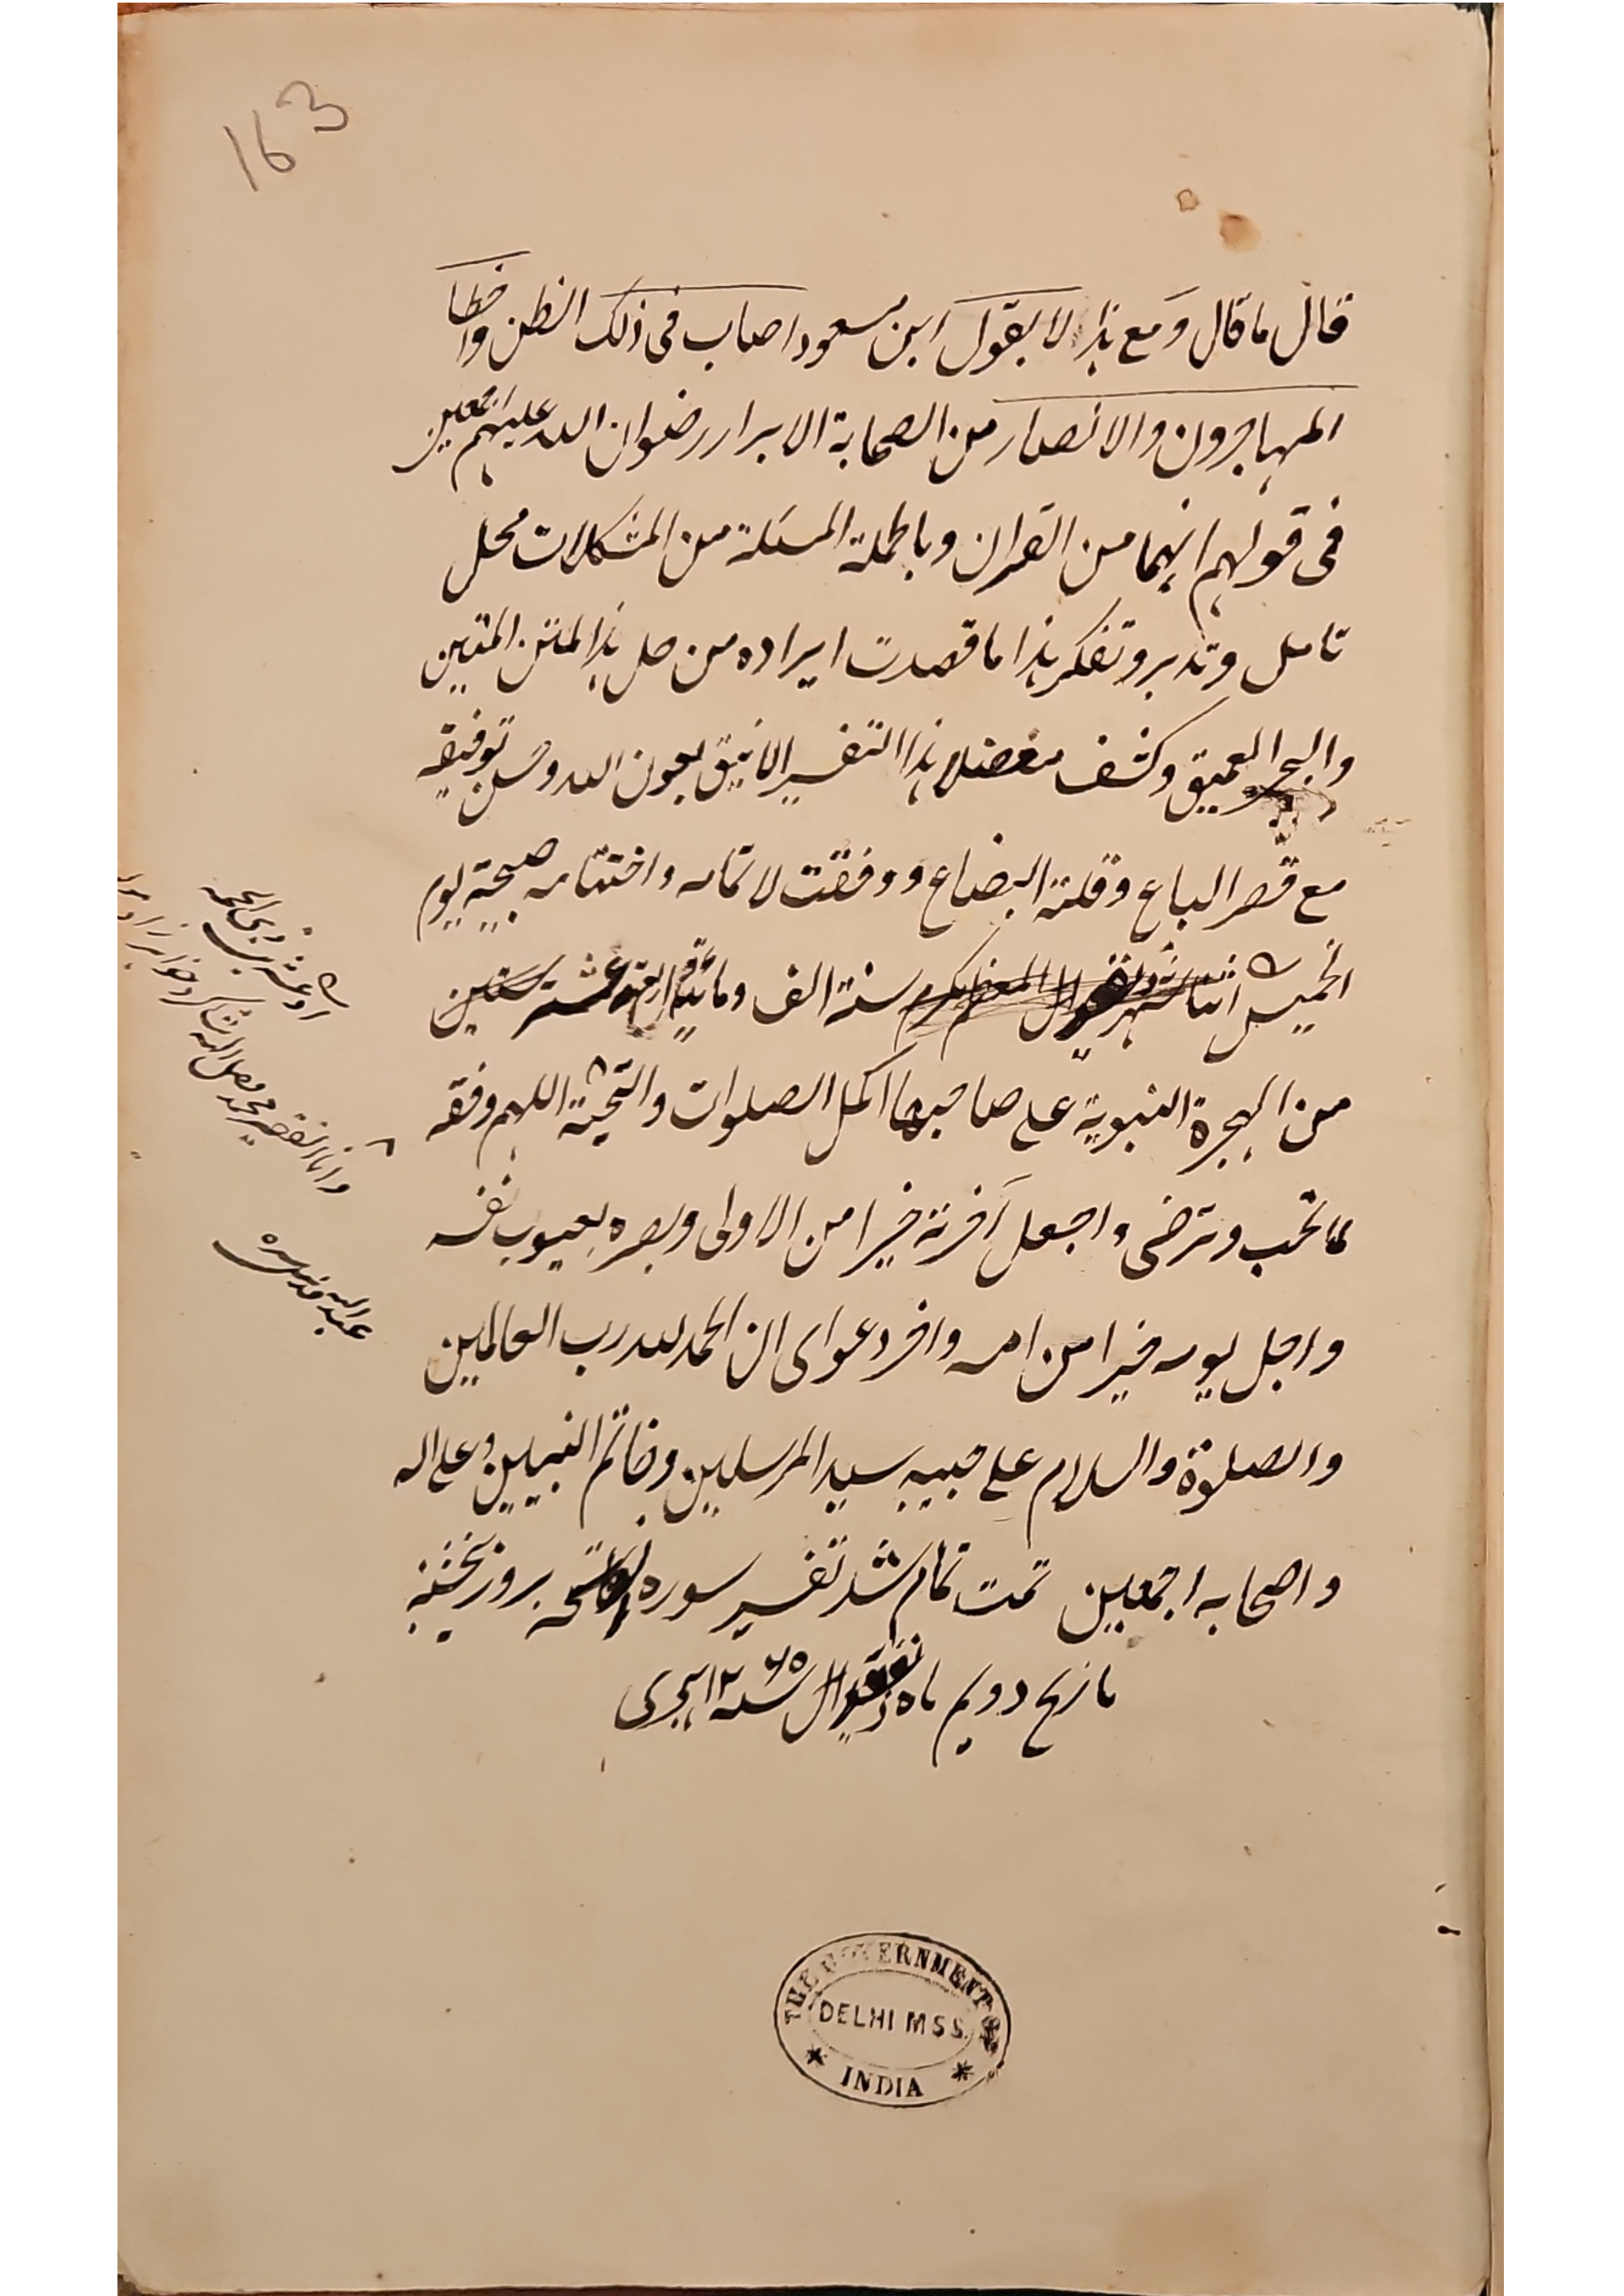 163
قال ما قال ومع هذا لا يقول ابن مسعود اصاب فى ذلك الظن واخطا
المهاجرون والانصار من الصحابة الابرار رضوان الله عليهم اجمعين
فى قولهم انهما من القران وبالجملة المسئلة من المشكلات محل
تامل وتدبر وتفكر هذا ما قصدت ايراده من حل هذا المتن المتين
والبحر العميق وكشف معضلا هذا التفسير الانيق بعون الله وحسن توفيقه
مع قصر الباع وقلة البضاع ووفقت لاتمامه واختتامه صبيحة يوم
الخميس سنة الف ومائة
من الهجرة النبوية على صاحبها اكمل الصلوات والتحية اللهم وفقه
لما تحب وترضى واجعل آخرته خيرا من الاولى وبصره بعيوب نفسه
واجل يومه خيرا من امسه واخر دعواى ان الحمد لله رب العالمين
والصلوة والسلام على حبيبه سيد المرسلين وخاتم النبيين وعلى اله
واصحابه اجمعين تمت تمام شد تفسير سوره فاتحه بروز پنجشنبه
تاريخ دويم ماه هجرى
ذى الحجة
وانا الفقير محمد
عبد الله قدس سره
THE GOVERNMENT OF
DELHI MSS.
INDIA